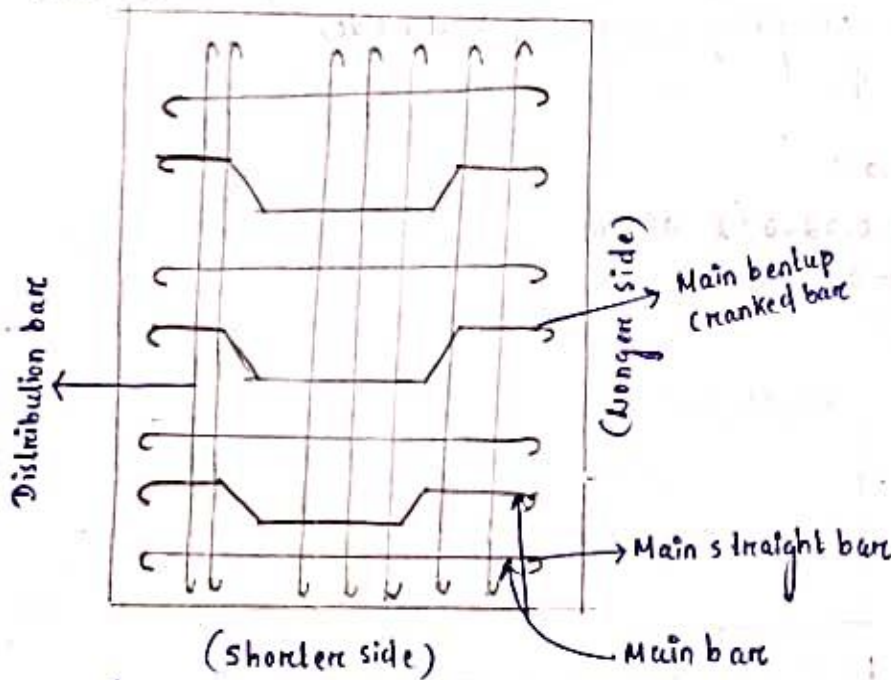 Distribution bar
(Longer side)
Main bentup
cranked bar
Main straight bar
Main bar
(Shorter side)